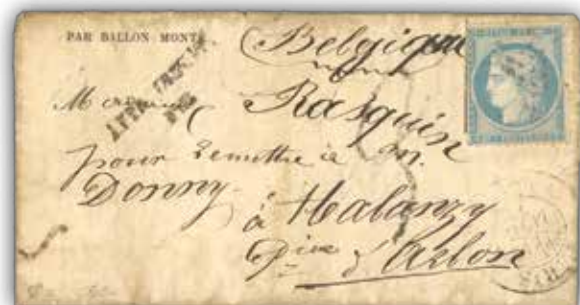 PAR BALLON MONTÉ.
Belgique
Rasquin
pour remettre à M.
Donny
à Halanzy
d'Arlon